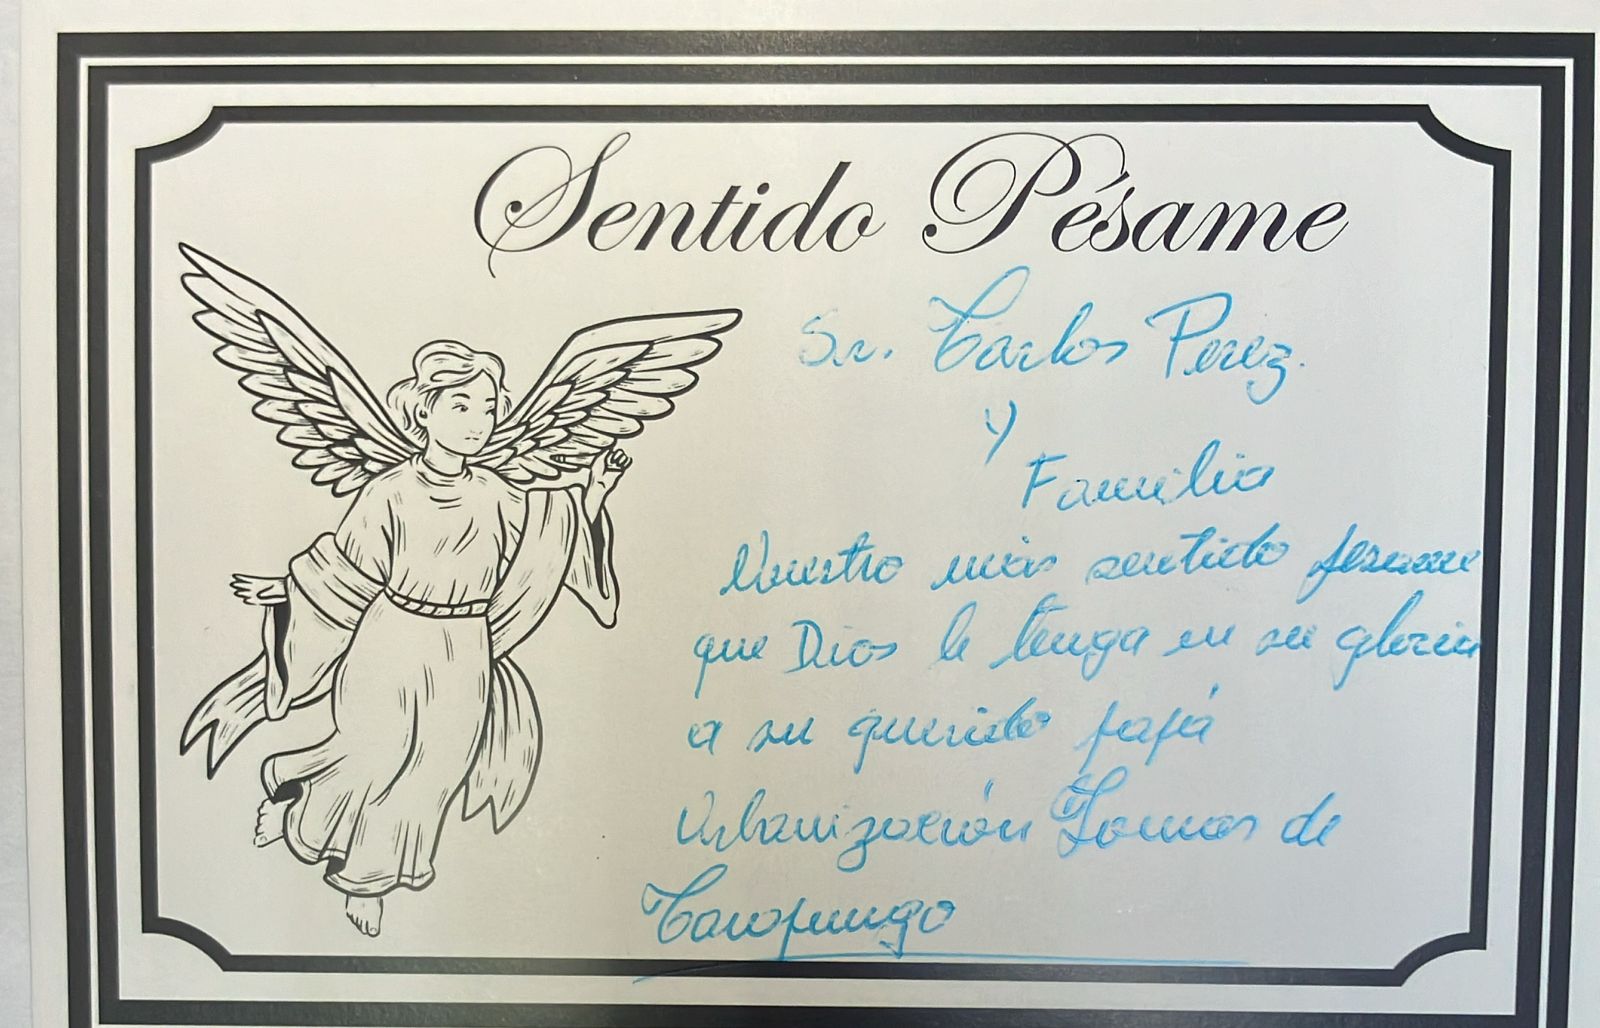 Sentido Pésame
Sr. Carlos Perez.
y
Familia
Nuestro más sentido pesame
que Dios le tenga en su gloria
a su querido papá
Urbanización Lomas de
Carapungo